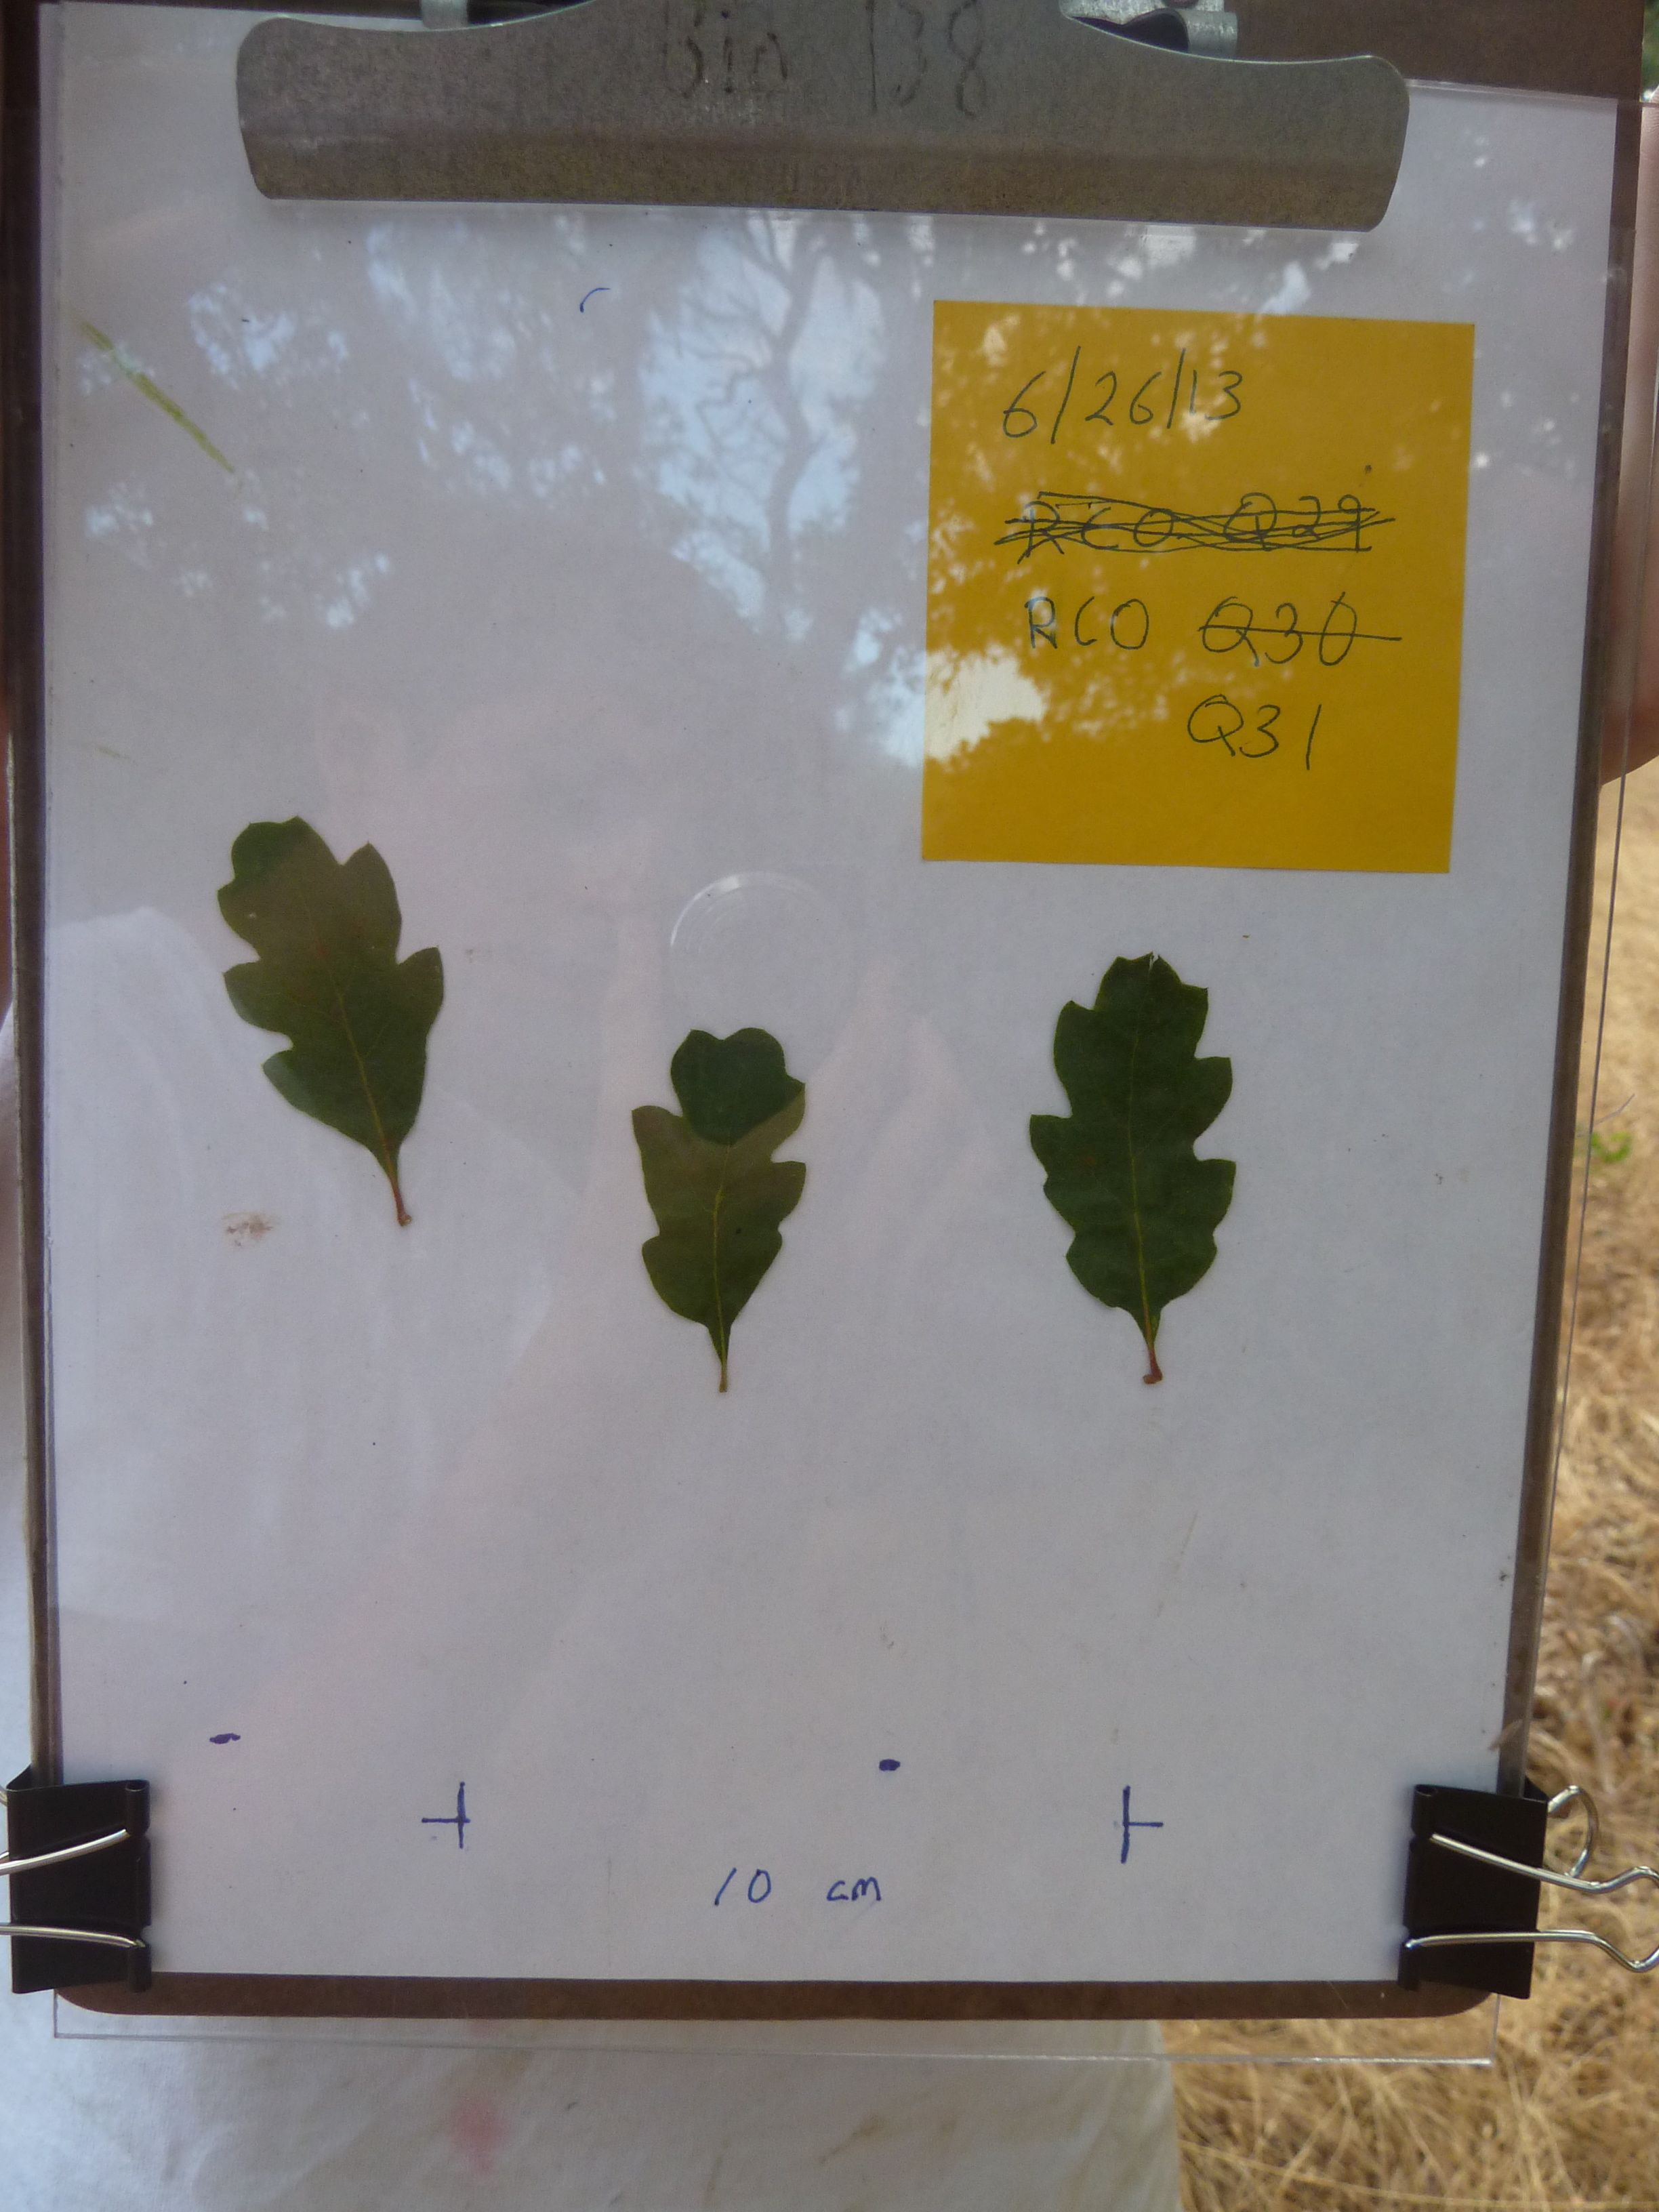 Bio 138
6/26/13
RCO Q29
RCO Q30
Q31
10 cm